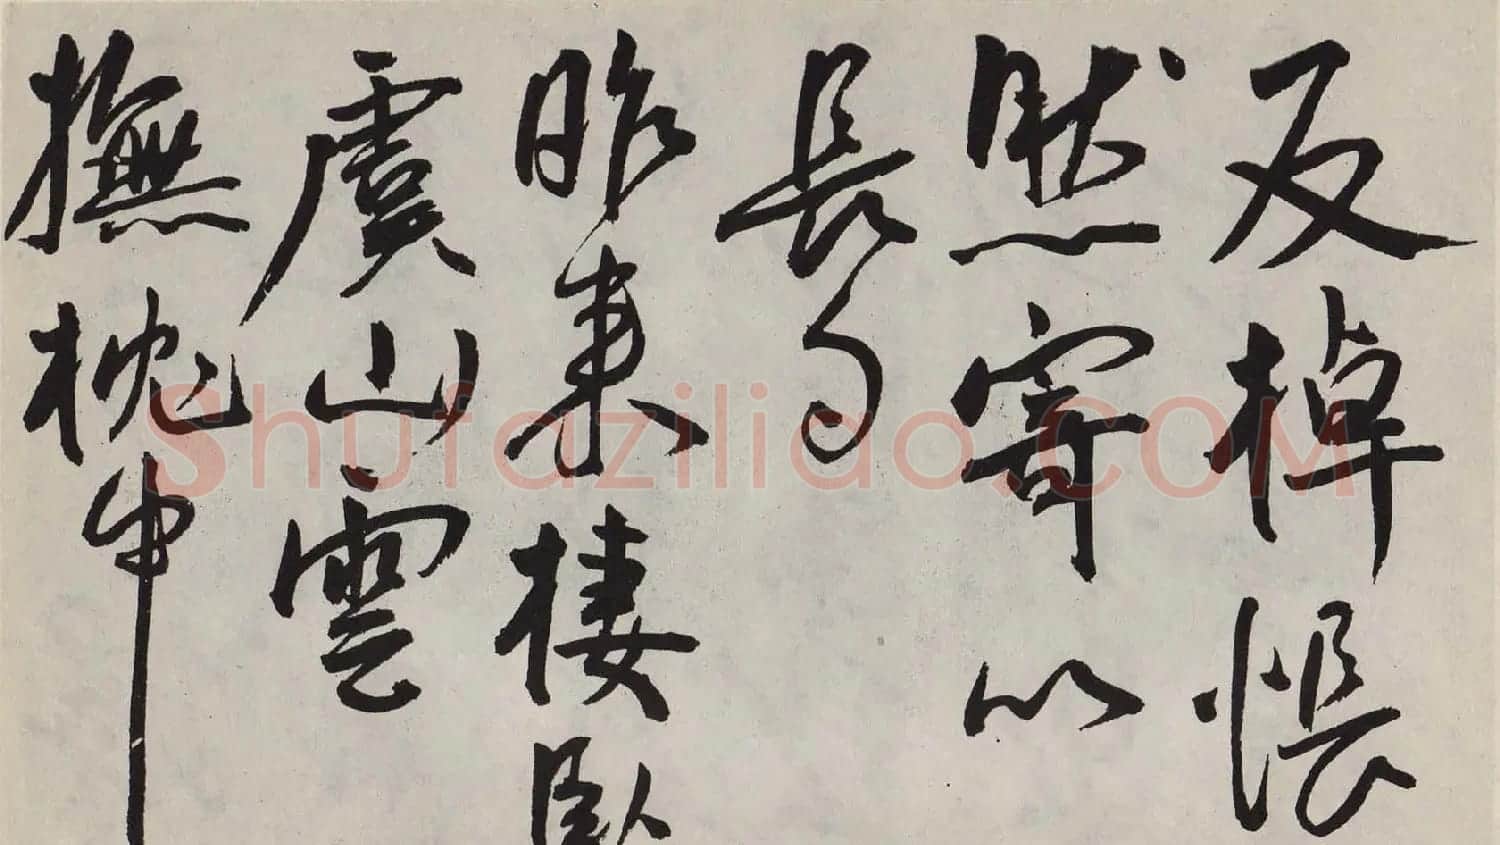 反棹悵
然寄以
長句
昨來棲臥
虞山雲
撫枕中
Shufaziliao.COM